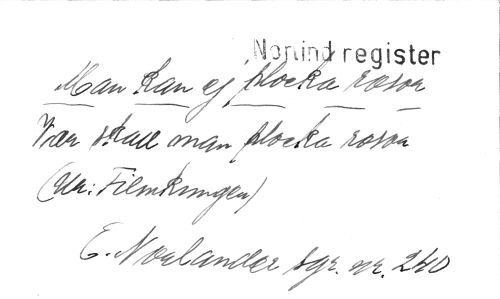 Norlind register
Man kan ej plocka rosor
Var skall man plocka rosor
(Ur: Filmkungen)
E. Norlander sgr. nr. 240